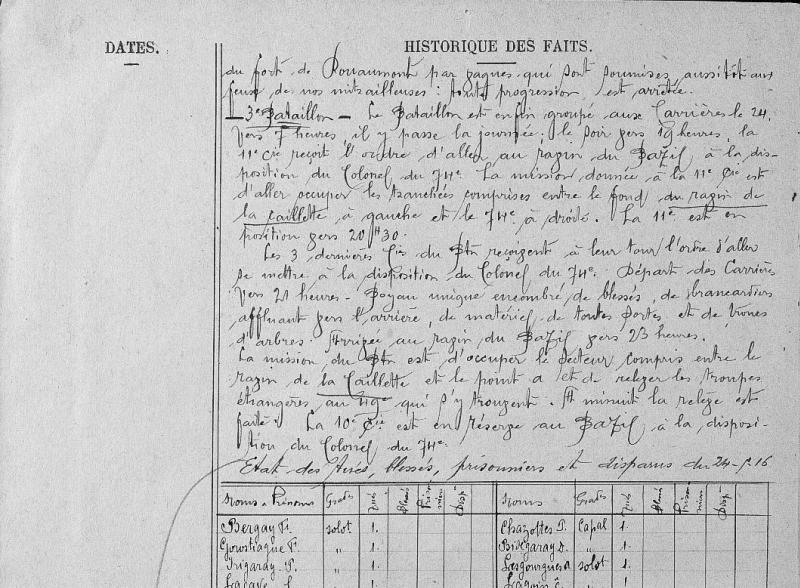 DATES.
HISTORIQUE DES FAITS.
du fort de Douaumont par vagues qui sont soumises aussitôt aux
feux de nos mitrailleuses : toute progression est arrêtée.
3e Bataillon - Le Bataillon est enfin groupé aux Carrières le 24
vers 7 heures, il y passe la journée ; le soir vers 19 heures, la
11e Cie reçoit l'ordre d'aller au ravin du Bazil à la dis-
position du Colonel du 74e. La mission donnée à la 11e Cie est
d'aller occuper les tranchées comprises entre le fond du ravin de
la Caillette à gauche et le 74e à droite. La 11e est en
position vers 20H30.
Les 3 dernières Cies du Btn reçoivent à leur tour l'ordre d'aller
se mettre à la disposition du Colonel du 74e. Départ des Carrières
vers 21 heures - Boyau unique encombré de blessés, de brancardiers
affluant vers l'arrière, de matériel de toutes sortes et de troncs
d'arbres. Arrivée au ravin du Bazil vers 23 heures.
La mission du Btn est d'occuper le secteur compris entre le
ravin de la Caillette et le point a et de relever les troupes
étrangères au 49e qui s'y trouvent. A minuit la relève est
faite. La 10e Cie est en réserve au Bazil à la disposi-
tion du Colonel du 74e.
Etat des tués, blessés, prisonniers et disparus du 24-5-16
Noms - Prénoms Grades Tués Blessés Prison niers Disp. Noms Grades Tués Blessés Prison niers Disp.
Bergay F. soldt 1. Chazottes P. Capal 1.
Goustiague F. " 1. Bidegaray D. " 1.
Irigaray P. " 1. Lesgourgues a soldt 1.